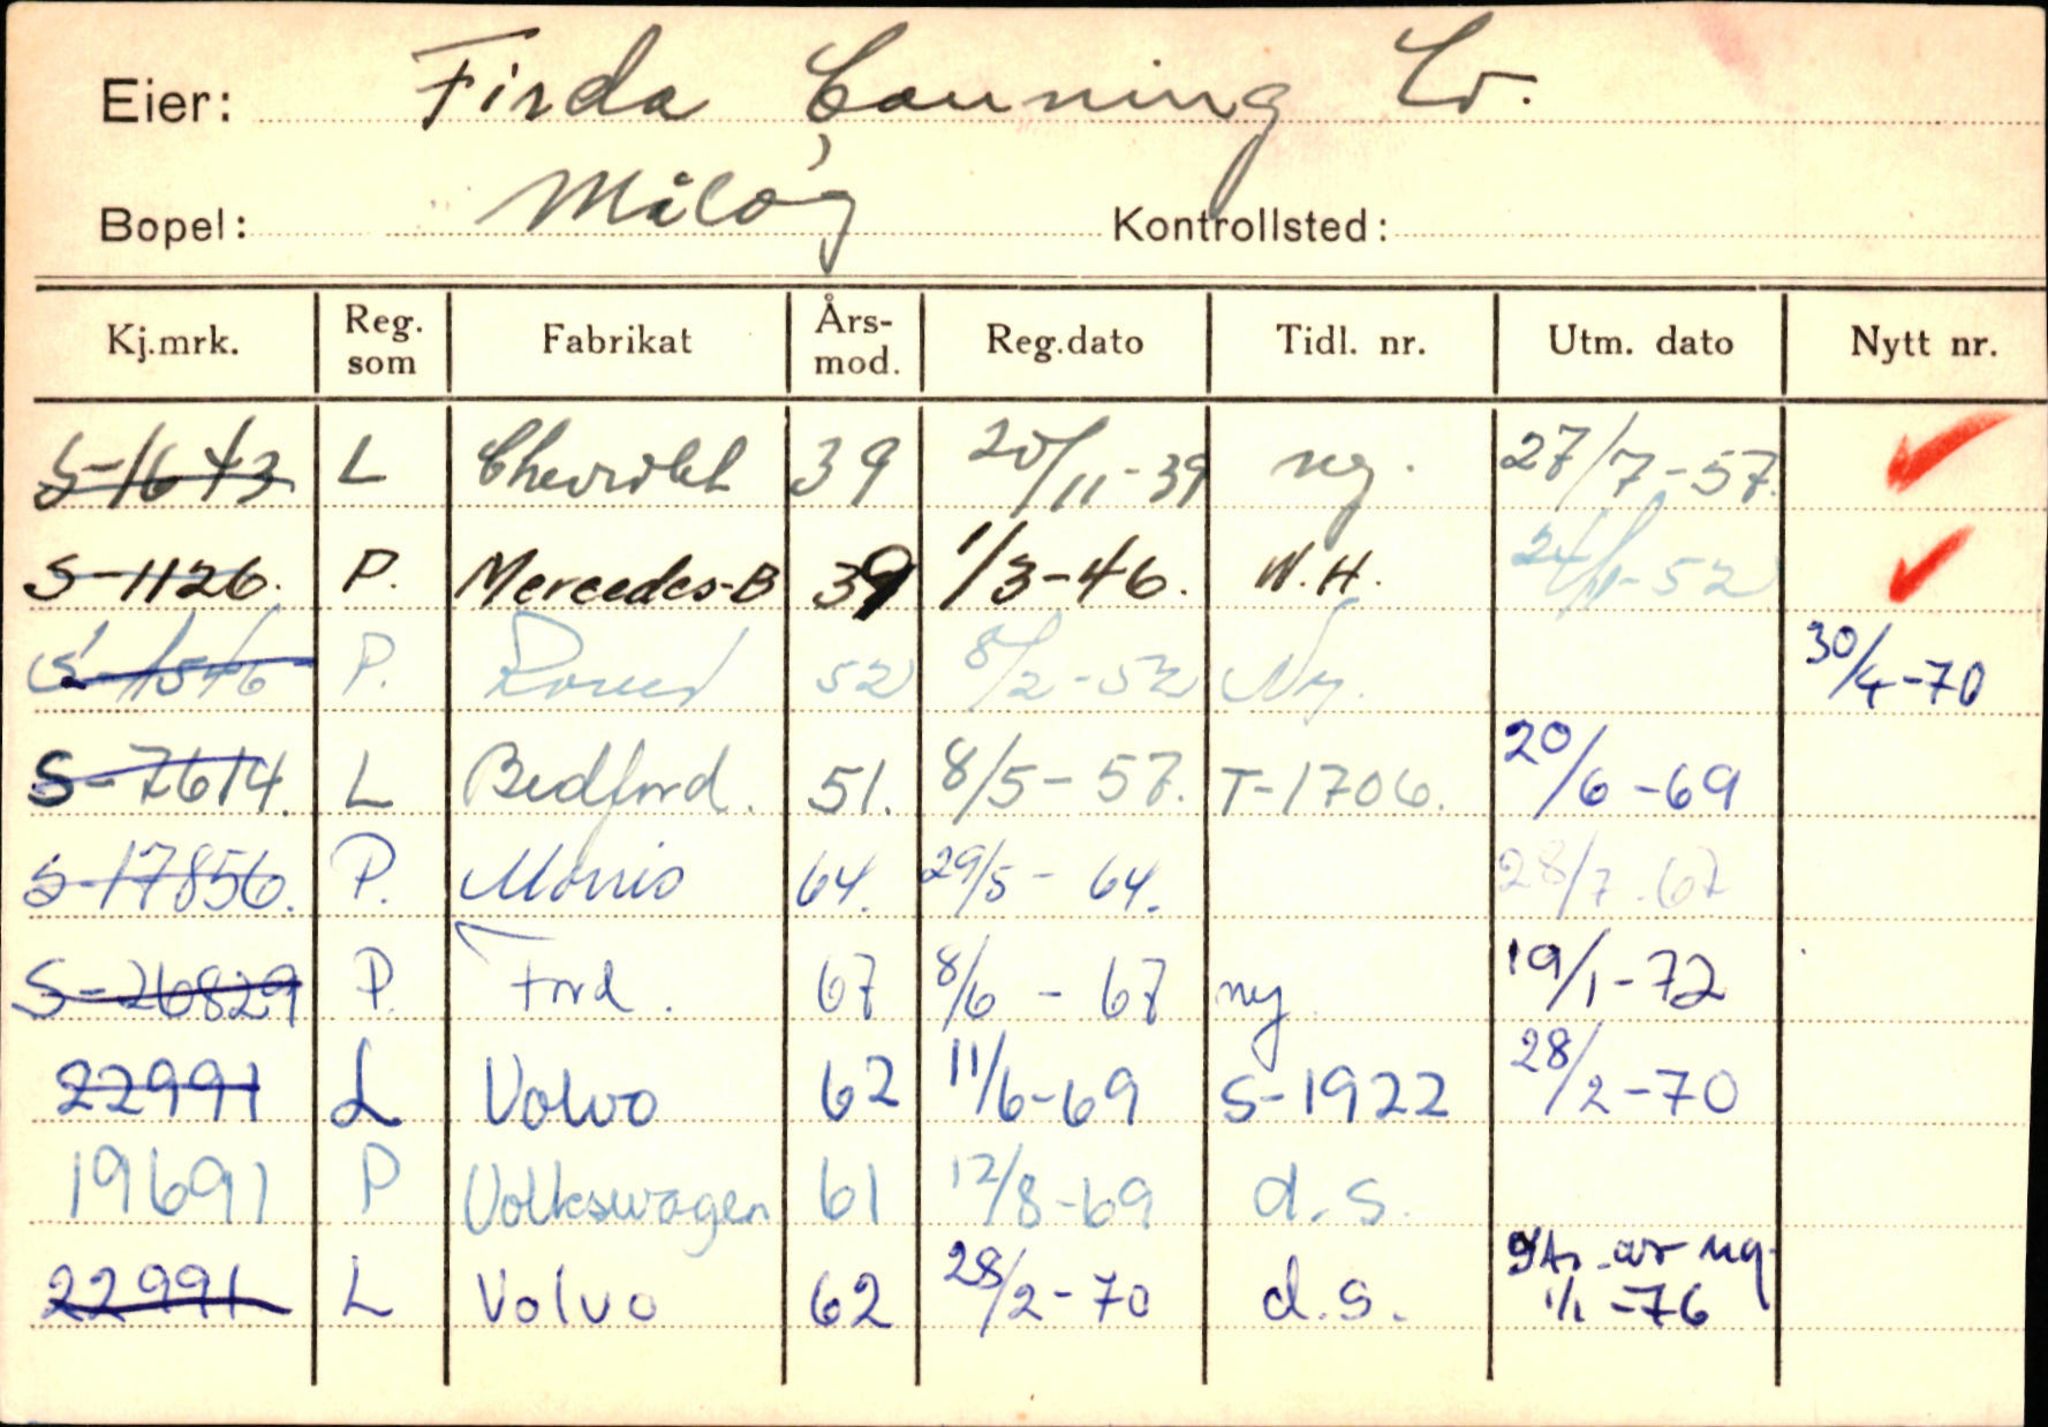 Eier: Firda Canning Co.
Bopel: Måløy Kontrollsted:
Kj.mrk. Reg. som Fabrikat Års-mod. Reg.dato Tidl. nr. Utm. dato Nytt nr.
S-1643 L Chevrolet 39 20/11-39 reg. 27/7-57.
S-1126. P. Mercedes-B 39 1/3-46. W.H. 24/11-52
S-1546 P. 52 8/2-52 Ny. 30/4-70
S-7614. L Bedford. 51. 8/5-57. T-1706. 20/6-69
S-17856. P. Morris 64. 29/5-64. 28/7-67
S-26829 P. Ford. 67 8/6-67 ny 19/1-72
22991 L Volvo 62 11/6-69 S-1922 28/2-70
19691 P Volkswagen 61 12/8-69 d.s.
22991 L Volvo 62 28/2-70 d.s. av reg. 1/1-76